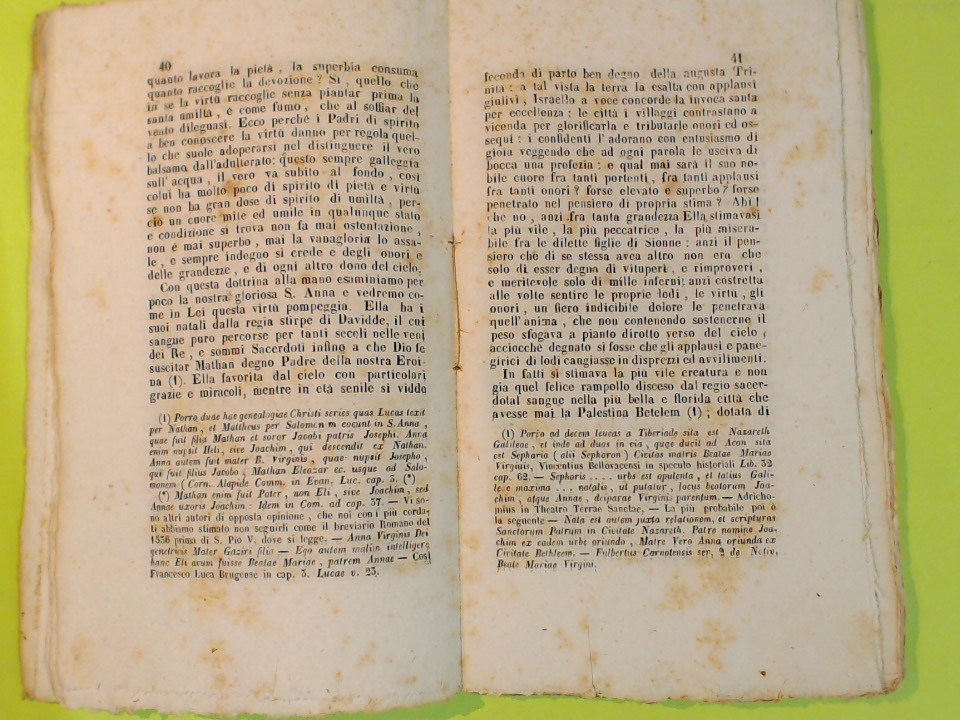 40
quanto lavora la pietà, la superbia consuma
quanto raccoglie la devozione? Sì, quello che
in se la virtù raccoglie senza piantar prima la
santa umiltà, è come fumo, che al soffiar del
vento dileguasi. Ecco perchè i Padri di spirito
a ben conoscere la virtù danno per regola quel-
lo che suole adoperarsi nel distinguere il vero
balsamo dall'adulterato: questo sempre galleggia
sull'acqua, il vero va subito al fondo, così
colui ha molto poco di spirito di pietà e virtù
se non ha gran dose di spirito di umiltà, per-
ciò un cuore mite ed umile in qualunque stato
e condizione si trova non fa mai ostentazione,
non è mai superbo, mai la vanagloria lo assa-
le, e sempre indegno si crede e degli onori e
delle grandezze, e di ogni altro dono del cielo.
Con questa dottrina alla mano esaminiamo per
poco la nostra gloriosa S. Anna e vedremo co-
me in Lei questa virtù pompeggia. Ella ha i
suoi natali dalla regia stirpe di Davidde, il cui
sangue puro percorse per tanti secoli nelle veni
dei Re, e sommi Sacerdoti infino a che Dio fe
suscitar Mathan degno Padre della nostra Eroi-
na (1). Ella favorita dal cielo con particolari
grazie e miracoli, mentre in età senile si vidde
(1) Porro duae hae genealogiae Christi series quas Lucas texit
per Nathan, et Mattheus per Salomonem coeunt in S. Anna,
quae fuit filia Mathan et soror Jacobi patris Josephi. Anna
enim nupsit Heli, sive Joachim, qui descendit ex Nathan.
Anna autem fuit mater B. Virginis, quae nupsit Josepho,
qui fuit filius Jacobo, Mathan Eleazar ec. usque ad Salo-
monem (Corn. Alapide Comm. in Evan. Luc. cap. 3. (*)
(*) Mathan enim fuit Pater, non Eli, sive Joachim, sed
Annae uxoris Joachim: Idem in Com. ad cap. 37. — Vi so-
no altri autori di opposta opinione, che noi con i più corda-
ti abbiamo stimato non seguirli come il breviario Romano del
1536 prima di S. Pio V. dove si legge. — Anna Virginis Dei
genetricis Mater Gaziri filia — Ego autem malin intelligere
hanc Eli avum fuisse Beatae Mariae, patrem Annae — Così
Francesco Luca Brugense in cap. 3. Lucae v. 23.
41
feconda di parto ben degno della augusta Tri-
nità: a tal vista la terra la esalta con applausi
giulivi, Israello a voce concorde la invoca santa
per eccellenza: le città i villaggi contrastano a
vicenda per glorificarla e tributarle onori ed os-
sequi: i confidenti l'adorano con entusiasmo di
gioia veggendo che ad ogni parola le usciva di
bocca una profezia: e qual mai sarà il suo no-
bile cuore fra tanti portenti, fra tanti applausi
fra tanti onori? forse elevato e superbo? forse
penetrato nel pensiero di propria stima? Ahi!
che no, anzi fra tanta grandezza Ella stimavasi
la più vile, la più peccatrice, la più misera-
bile fra le dilette figlie di Sionne: anzi il pen-
siero che di se stessa avea altro non era che
solo di esser degna di vituperi, e rimproveri,
e meritevole solo di mille inferni: anzi costretta
alle volte sentire le proprie lodi, le virtù, gli
onori, un fiero indicibile dolore le penetrava
quell'anima, che non contenendo sostenerne il
peso sfogava a pianto dirotto verso del cielo,
acciocchè degnato si fosse che gli applausi e pane-
girici di lodi cangiasse in disprezzi ed avvilimenti.
In fatti si stimava la più vile creatura e non
già quel felice rampollo disceso dal regio sacer-
dotal sangue nella più bella e florida città che
avesse mai la Palestina Betelem (1); dotata di
(1) Porto ad decem leucas a Tiberiade sita est Nazareth
Galileae, et inde ad duas in via, quae ducit ad Acon sita
est Sepharia (alii Sepharon) Civitas matris Beatae Mariae
Virginis, Vincentius Bellovacensi in speculo historiali Lib. 32
cap. 62. — Sephoris.... urbs est opulenta, et totius Gali-
leae maxima... natalis, ut putatur, locus beatorum Joa-
chim, atque Annae, deiparae Virginis parentum. — Adricho-
mius in Theatro Terrae Sanctae, — La più probabile poi è
la seguente — Nata est autem juxta relationem, et scripturas
Sanctorum Patrum in Civitate Nazareth. Patre nomine Joa-
chim ex eadem urbe oriundo, Matre Vero Anna oriunda ex
Civitate Bethleem. — Fulbertus Carnotensis ser. 2 de Nativ.
Beate Mariae Virgini.